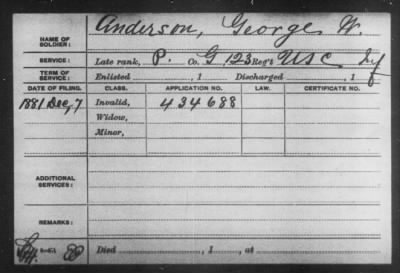 NAME OF SOLDIER: Anderson, George W.
SERVICE: Late rank, P. Co. G, 123 Reg't USC Inf
TERM OF SERVICE: Enlisted , 1 Discharged , 1
DATE OF FILING. CLASS. APPLICATION NO. LAW. CERTIFICATE NO.
1881 Dec, 7 Invalid, 434688
Widow,
Minor,
ADDITIONAL SERVICES:
REMARKS:
Died , 1 , at